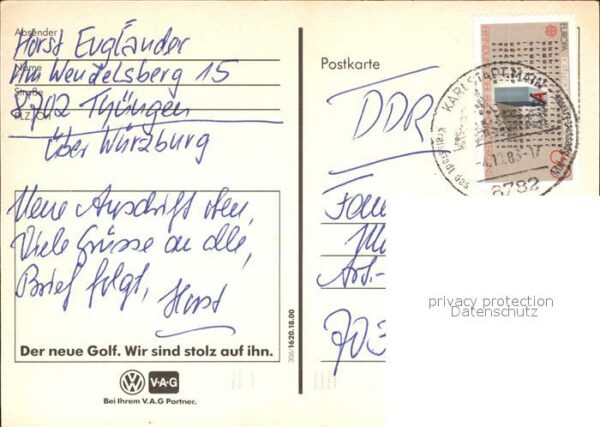 Absender
Horst Engländer
Name
Am Wendelsberg 15
Straße
8702 Thüngen
PLZ, Ort
über Würzburg
Neue Anschrift oben,
Viele Grüsse an alle,
Brief folgt, Horst
Der neue Golf. Wir sind stolz auf ihn.
VW V·A·G
Bei Ihrem V.A.G Partner.
306/1620.18.00
Postkarte
DDR
703
EUROPA
80
KARLSTADT, MAIN
Kreisstadt des
8782
privacy protection
Datenschutz